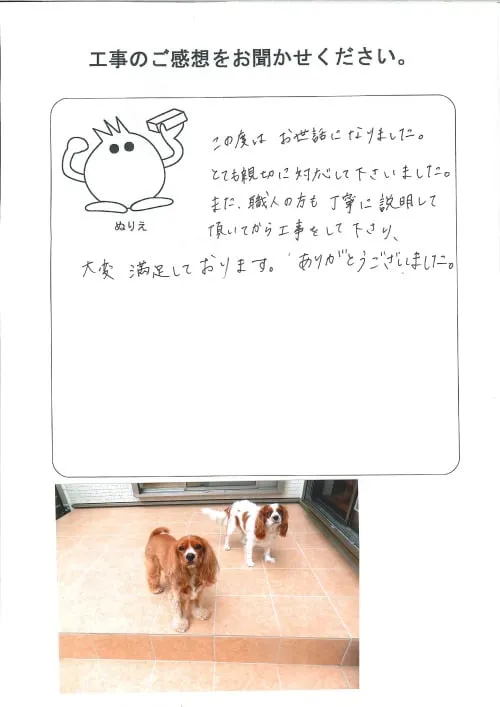 工事のご感想をお聞かせください。
ぬりえ
この度は お世話になりました。
とても親切に対応して下さいました。
また、職人の方も丁寧に説明して
頂いてから工事をして下さり、
大変 満足しております。ありがとうございました。